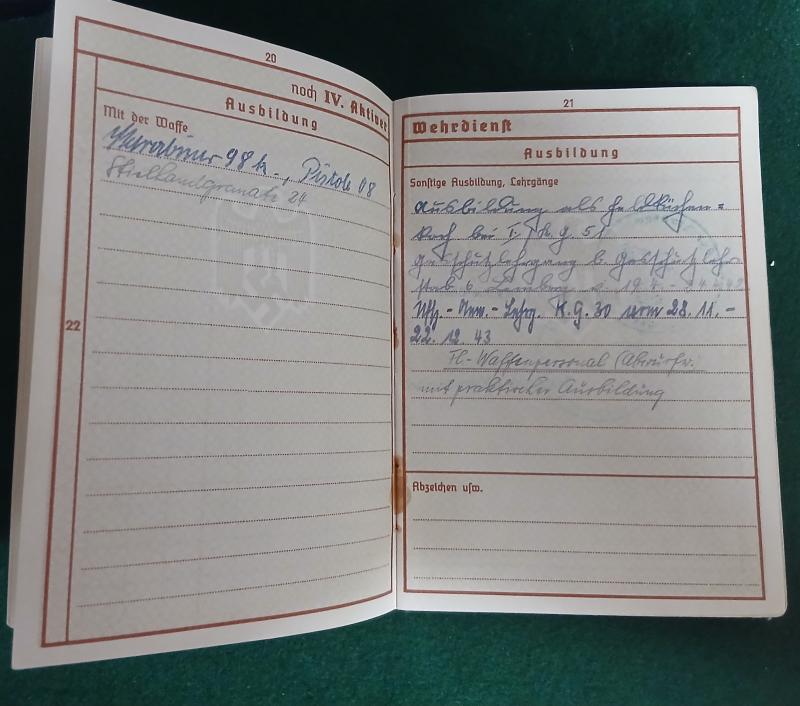 20
noch IV. Aktiver
Ausbildung
Mit der Waffe
Karabiner 98 k -, Pistole 08
Stielhandgranate 24
22
21
Wehrdienst
Ausbildung
Sonstige Ausbildung, Lehrgänge
Ausbildung als Feldküchen=
koch bei I./K.G. 51
Gasschutzlehrgang b. Gasschutz Lehr
stab 6 Lemberg
Uffz.-Anw.-Lehrg. K.G. 30 vom 28.11.-
22.12.43
Fl.-Waffenpersonal (Abwurfw.
mit praktischer Ausbildung
Abzeichen usw.